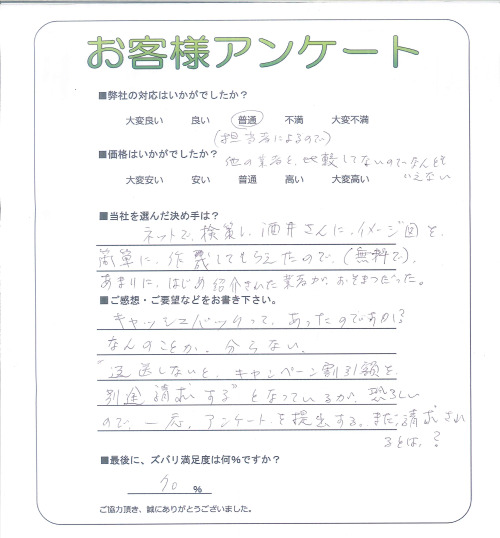 お客様アンケート
■弊社の対応はいかがでしたか？
大変良い 良い 普通 不満 大変不満
(担当者によるので)
■価格はいかがでしたか？ 他の業者と、比較してないのでなんとも
大変安い 安い 普通 高い 大変高い いえない
■当社を選んだ決め手は？
ネットで、検策し、酒井さんに、イメージ図を、
簡単に、作成してもらえたので、(無料で)、
あまりに、はじめ紹介された業者が、おそまつだった。
■ご感想・ご要望などをお書き下さい。
キャッシュバックって、あったのですか？
なんのことか、分らない、
"返送しないと、キャンペーン割引額を、
別途請求する"となっているが、恐ろしい
ので、一応、アンケートを提出する。まだ請求され
るとは、？
■最後に、ズバリ満足度は何%ですか？
70 %
ご協力頂き、誠にありがとうございました。